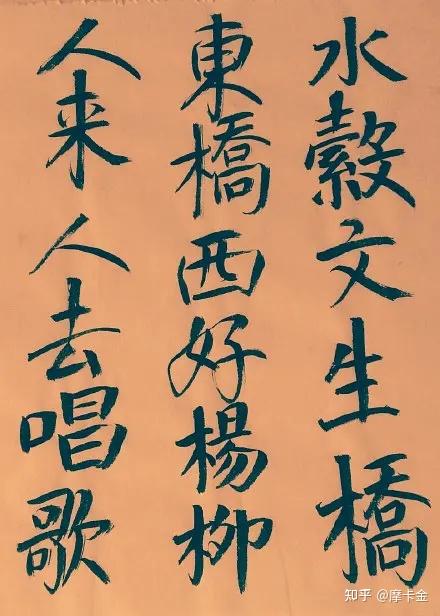 水縠文生橋
東橋西好楊柳
人来人去唱歌
知乎 @摩卡金